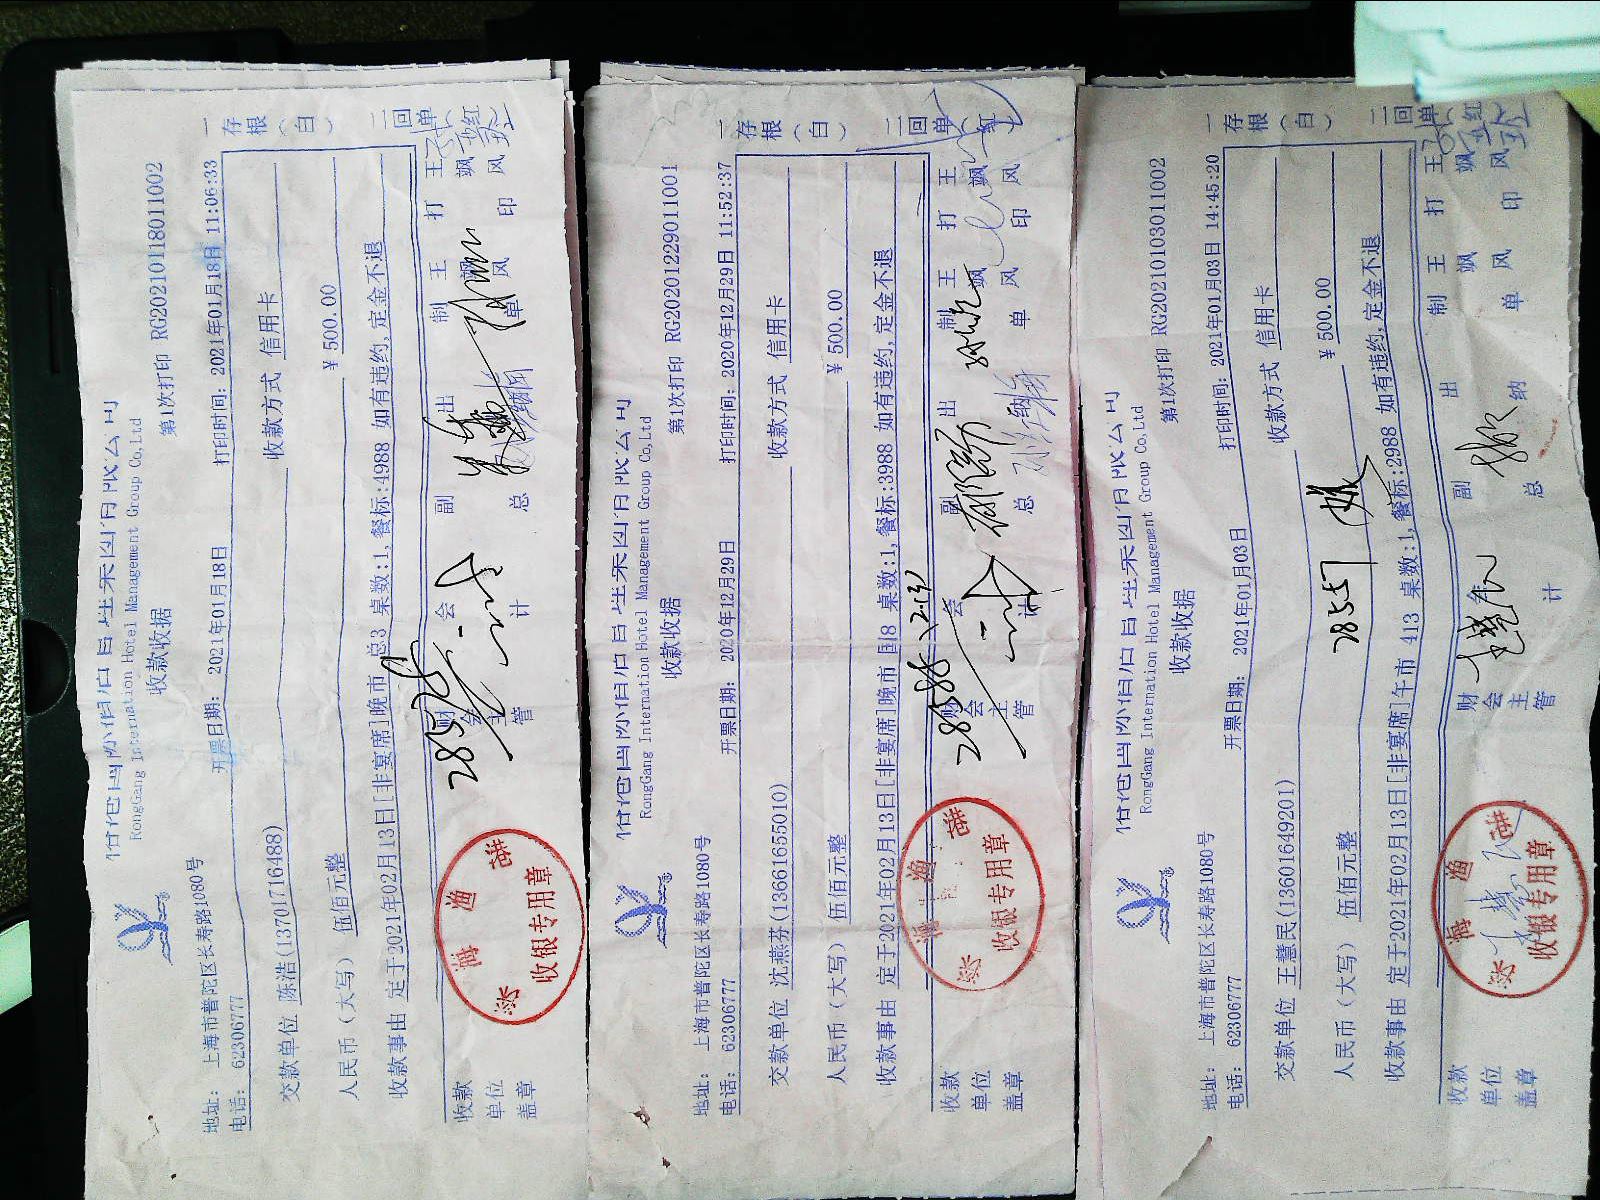 RongGang Internation Hotel Management Group Co,Ltd
收款收据
第1次打印 RG20210118011002
地址： 上海市普陀区长寿路1080号
电话： 62306777
开票日期： 2021年01月18日
打印时间：2021年01月18日 11:06:33
交款单位 陈浩(13701716488)
收款方式 信用卡
人民币（大写） 伍佰元整
¥ 500.00
收款事由 定于2021年02月13日[非宴席]晚市 总3 桌数:1,餐标:4988 如有违约,定金不退
收款单位盖章
财会主管
会计
副总
出纳
制单 王飒风
打印 王飒风
一存根（白）
二回单（红）
收银专用章
28578
RongGang Internation Hotel Management Group Co,Ltd
收款收据
第1次打印 RG20201229011001
地址： 上海市普陀区长寿路1080号
电话： 62306777
开票日期： 2020年12月29日
打印时间：2020年12月29日 11:52:37
交款单位 沈燕芬(13661655010)
收款方式 信用卡
人民币（大写） 伍佰元整
¥ 500.00
收款事由 定于2021年02月13日[非宴席]晚市 国8 桌数:1,餐标:3988 如有违约,定金不退
收款单位盖章
财会主管
会计
副总
出纳
制单 王飒风
打印 王飒风
一存根（白）
二回单（红）
收银专用章
RongGang Internation Hotel Management Group Co,Ltd
收款收据
第1次打印 RG20210103011002
地址： 上海市普陀区长寿路1080号
电话： 62306777
开票日期： 2021年01月03日
打印时间：2021年01月03日 14:45:20
交款单位 王慧民(13601649201)
收款方式 信用卡
人民币（大写） 伍佰元整
¥ 500.00
28557
收款事由 定于2021年02月13日[非宴席]午市 413 桌数:1,餐标:2988 如有违约,定金不退
收款单位盖章
财会主管
会计
副总
出纳
制单 王飒风
打印 王飒风
一存根（白）
二回单（红）
收银专用章